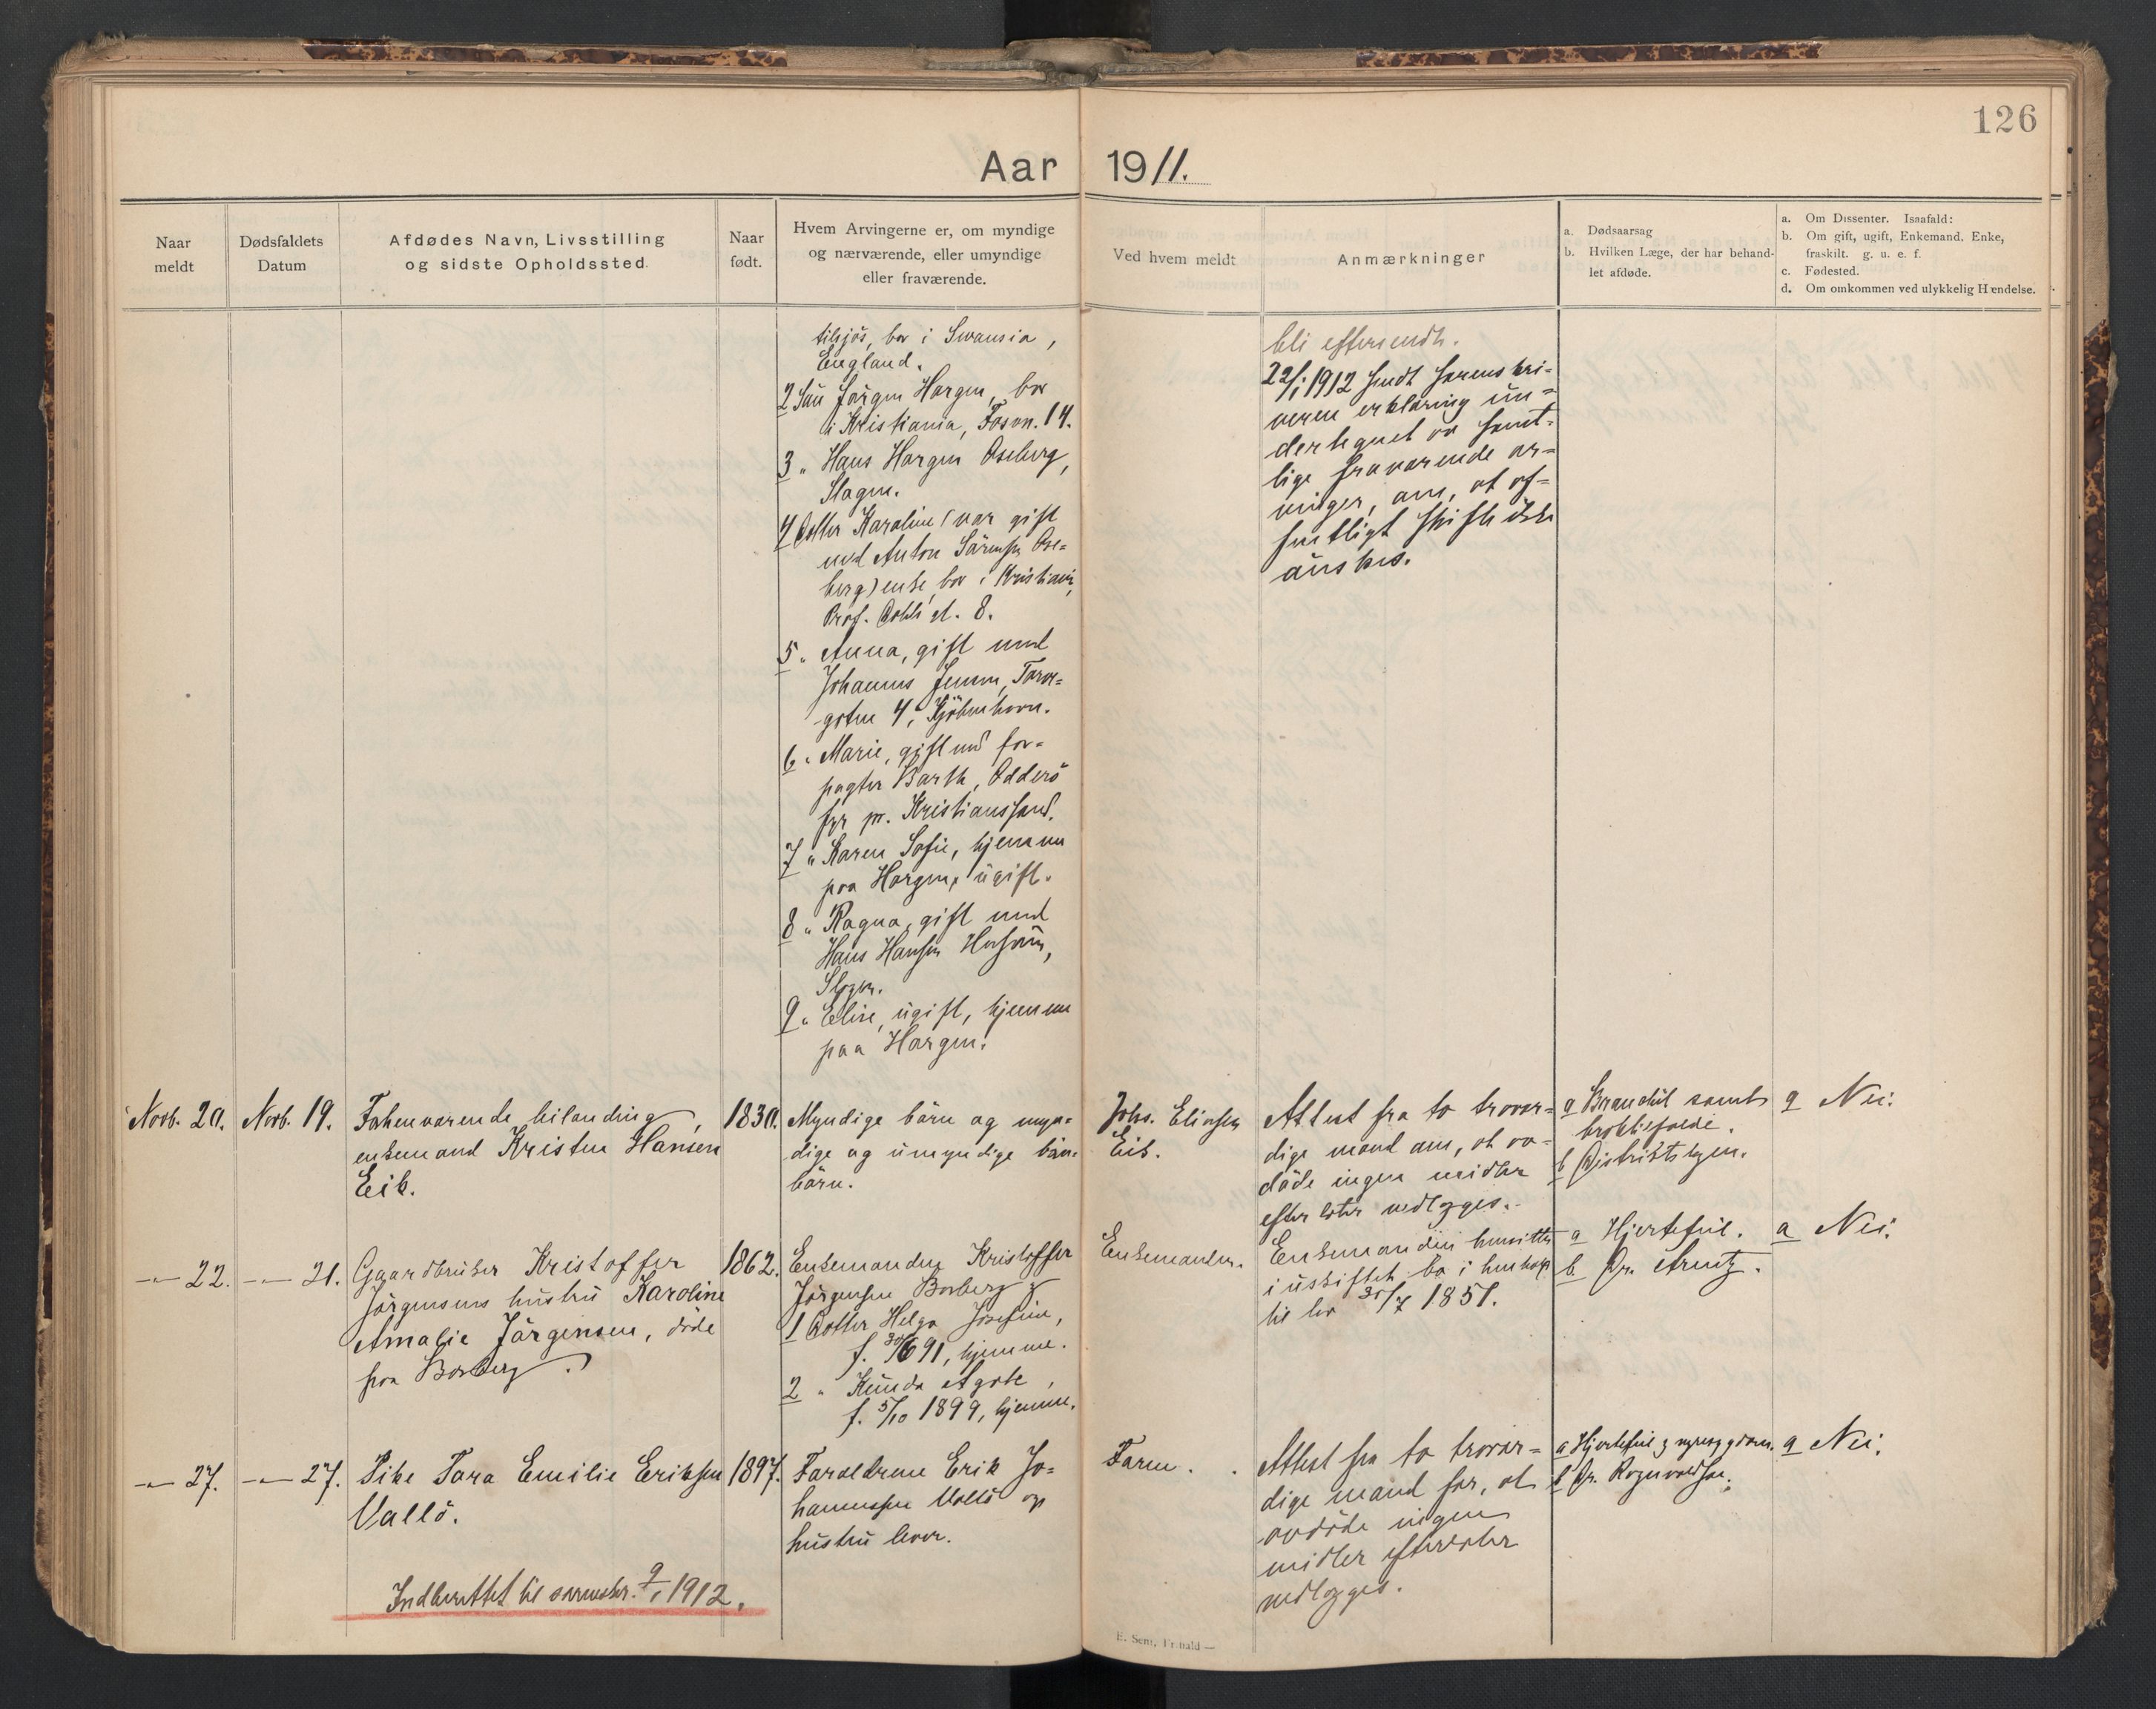 126
Aar 1911.
Naar
meldt
Dødsfaldets
Datum
Afdødes Navn, Livsstilling
og sidste Opholdssted.
Naar
født.
Hvem Arvingerne er, om myndige
og nærværende, eller umyndige
eller fraværende.
Ved hvem meldt
Anmærkninger
a. Dødsaarsag
b. Hvilken Læge, der har behand-
let afdøde.
a. Om Dissenter. Isaafald:
b. Om gift, ugift, Enkemand. Enke,
fraskilt. g. u. e. f.
c. Fødested.
d. Om omkommen ved ulykkelig Hændelse.
tilsjøs, bor i Swansia,
England.
2 Sön Jörgen Horgen, bor
i Kristiania, Fosvn. 14.
3 " Hans Horgen Oseberg,
Slagen.
4 Dotter Karoline (var gift
med Anton Sörensen Ose-
berg) enke, bor i Kristiania,
Prof. Dahls gt. 8.
5 " Anna, gift med
Johannes Jensen,
gaten 4, Kjöbenhavn.
6 " Marie, gift med for-
pagter Barth, Odderö
fyr pr. Kristianssand.
7 " Karen Sofie, hjemme
paa Horgen, ugift.
8 " Ragna, gift med
Hans Hansen
Slagen.
9 " Elise, ugift, hjemme
paa Horgen.
bli eftersendt.
22/1 1912 sendt sorenskri-
veren erklæring un-
dertegnet av samt-
lige fraværende ar-
vinger, om, at of-
fentligt skifte ikke
önskes.
Novb. 20.
Novb. 19.
Forhenværende bilandring,
enkemand Kristen Hansen
Eik.
1830.
Myndige börn og myn-
dige og umyndige börne-
börn.
Johs. Eliasen
Eik.
Attest fra to trovær-
dige mænd om, at av-
döde ingen midler
efterlater vedlægges.
a Brandbyl samt
b Distriktslægen.
a Nei.
-"- 22.
-"- 21.
Gaardbruker Kristoffer
Jörgensens hustru Karoline
Amalie Jörgensen, döde
paa Borberg.
1862.
Enkemanden Kristoffer
Jörgensen Borberg og
1 Dotter Helga Josefine,
f. 30/6 91, hjemme.
2 " Kunda Agate,
f. 5/10 1899, hjemme.
Enkemanden.
Enkemanden hensitter
i uskiftet bo i henhold
til lov 30/7 1851.
a Hjertefeil.
b Dr. Arntz.
a Nei.
-"- 27.
-"- 27.
Pike Tora Emilie Eriksen
Vallö.
1897.
Forældrene Erik Jo-
hannessen Vallö og
hustru lever.
Faren.
Attest fra to trovær-
dige mænd for, at
avdöde ingen
midler efterlater
vedlægges.
a Hjertefeil og nyresygdom.
b Dr. Rognvaldsen.
a Nei.
Indberettet til sorenskr. 9/1 1912.
E. Sem, Fr.hald —